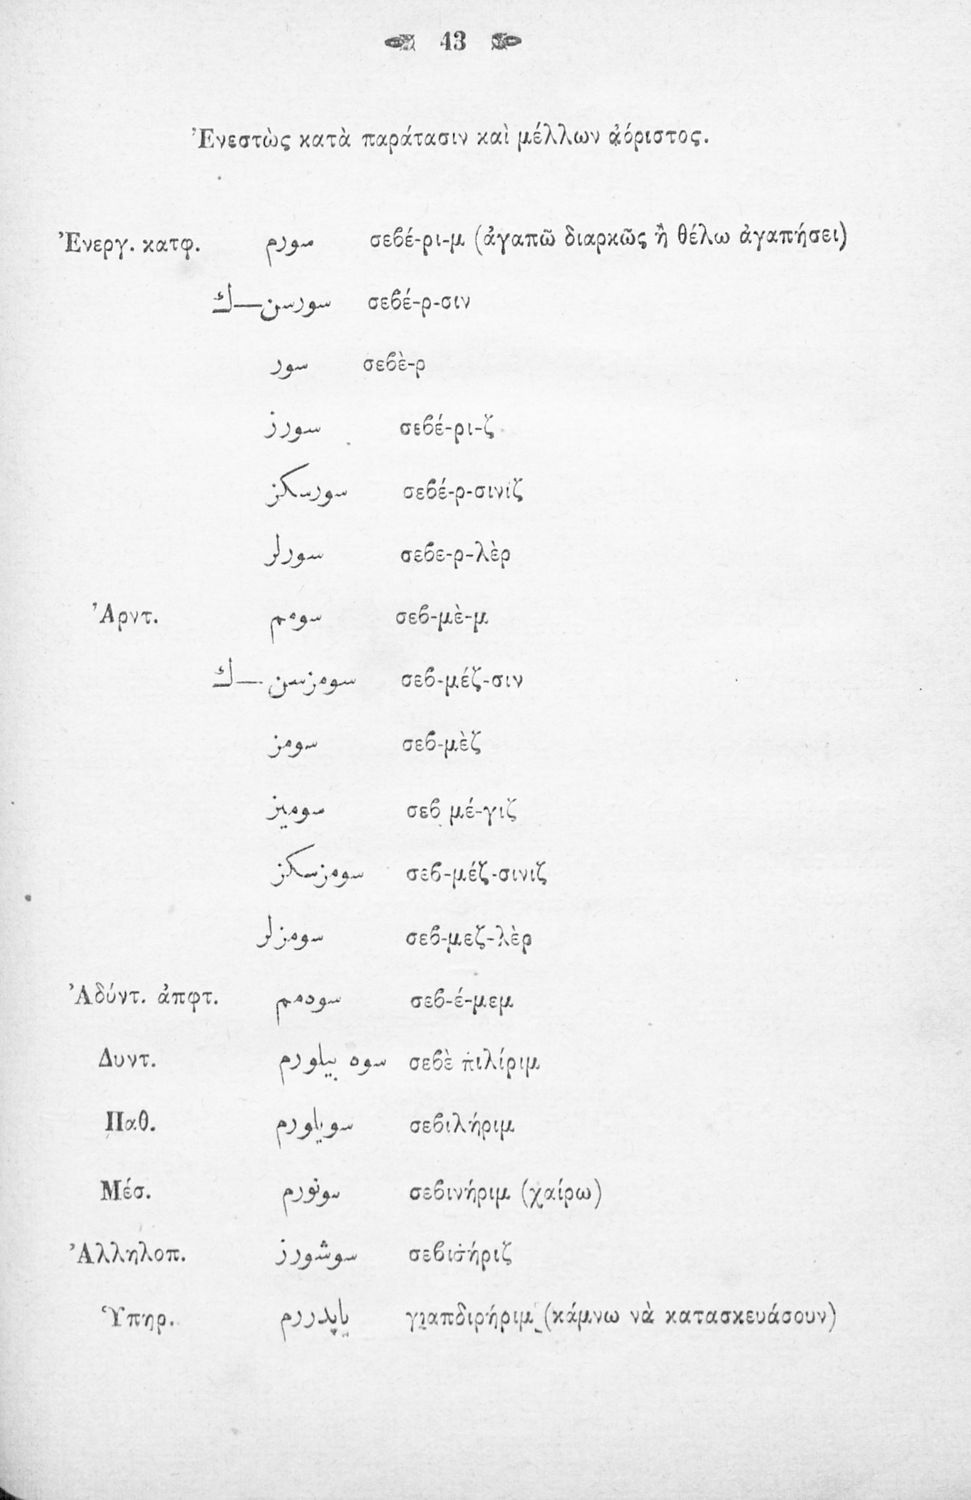 43
Ἐνεστὼς κατὰ παράτασιν καὶ μέλλων ἀόριστος.
Ἐνεργ. κατφ. سورم σεβέ-ρι-μ (ἀγαπῶ διαρκῶς ἢ θέλω ἀγαπήσει)
سورسن—ڭ σεβέ-ρ-σιν
سور σεβὲ-ρ
سورز σεβέ-ρι-ζ
سورسكز σεβέ-ρ-σινιζ
سورلر σεβε-ρ-λὲρ
Ἀρντ. سومم σεβ-μὲ-μ
سومزسن—ڭ σεβ-μέζ-σιν
سومز σεβ-μὲζ
سوميز σεβ μέ-γιζ
سومزسكز σεβ-μέζ-σινιζ
سومزلر σεβ-μεζ-λὲρ
Ἀδύντ. ἀπφτ. سوه‌مم σεβ-έ-μεμ
Δυντ. سوه بيلورم σεβὲ πιλίριμ
Παθ. سويلورم σεβιλήριμ
Μέσ. سونورم σεβινήριμ (χαίρω)
Ἀλληλοπ. سوشورز σεβισ̇ήριζ
Ὑπηρ. ياپدررم γιαπδιρήριμ (κάμνω νὰ κατασκευάσουν)